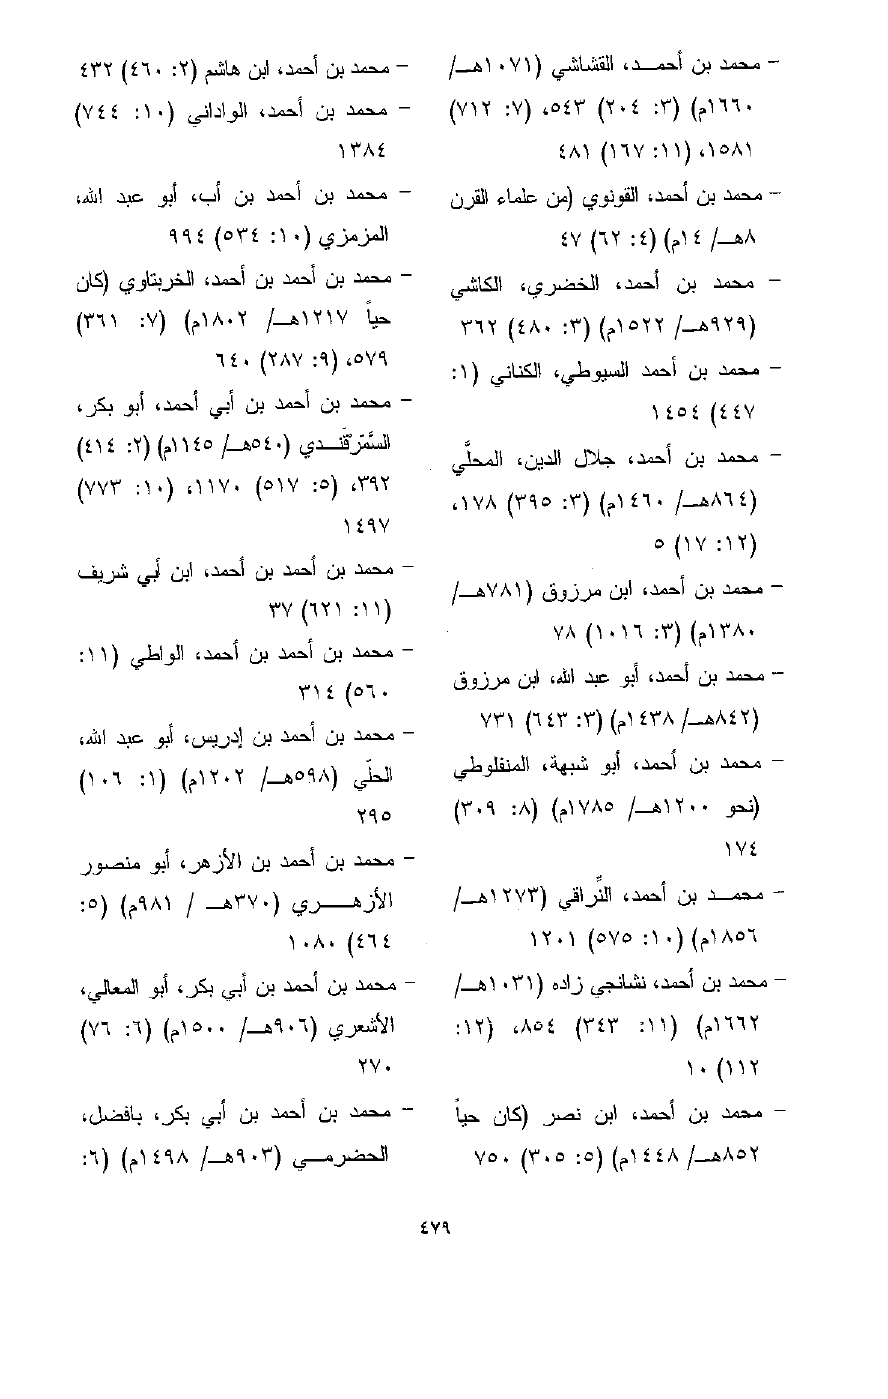 - محمد بن أحمـــد، القشاشي (١٠٧١هـــ/
١٦٦٠م) (٣: ٢٠٤) ٥٤٣، (٧: ٧١٢)
١٥٨١، (١١: ١٦٧) ٤٨١
- محمد بن أحمد، القونوي (من علماء القرن
٨هـــ/ ١٤م) (٤: ٦٢) ٤٧
- محمد بن أحمد، الخضري، الكاشي
(٩٢٩هــ/ ١٥٢٢م) (٣: ٤٨٠) ٣٦٢
- محمد بن أحمد السيوطي، الكناني (١:
٤٤٧) ١٤٥٤
- محمد بن أحمد، جلال الدين، المحلَّي
(٨٦٤هــ/ ١٤٦٠م) (٣: ٣٩٥) ١٧٨،
(١٢: ١٧) ٥
- محمد بن أحمد، ابن مرزوق (٧٨١هـــ/
١٣٨٠م) (٣: ١٠١٦) ٧٨
- محمد بن أحمد، أبو عبد الله، ابن مرزوق
(٨٤٢هــ/ ١٤٣٨م) (٣: ٦٤٣) ٧٣١
- محمد بن أحمد، أبو شبهة، المنفلوطي
(نحو ١٢٠٠هــ/ ١٧٨٥م) (٨: ٣٠٩)
١٧٤
- محمــد بن أحمد، النَّراقي (١٢٧٣هـــ/
١٨٥٦م) (١٠: ٥٧٥) ١٢٠١
- محمد بن أحمد، نشانجي زاده (١٠٣١هــ/
١٦٦٢م) (١١: ٣٤٣) ٨٥٤، (١٢:
١١٢) ١٠
- محمد بن أحمد، ابن نصر (كان حياً
٨٥٢هـــ/ ١٤٤٨م) (٥: ٣٠٥) ٧٥٠
- محمد بن أحمد، ابن هاشم (٢: ٤٦٠) ٤٣٢
- محمد بن أحمد، الواداني (١٠: ٧٤٤)
١٣٨٤
- محمد بن أحمد بن أب، أبو عبد الله،
المزمزي (١٠: ٥٣٤) ٩٩٤
- محمد بن أحمد بن أحمد، الخربتاوي (كان
حياً ١٢١٧هــ/ ١٨٠٢م) (٧: ٣٦١)
٥٧٩، (٩: ٢٨٧) ٦٤٠
- محمد بن أحمد بن أبي أحمد، أبو بكر،
السَّمَرقَنـــدي (٥٤٠هــ/ ١١٤٥م) (٢: ٤١٤)
٣٩٢، (٥: ٥١٧) ١١٧٠، (١٠: ٧٧٣)
١٤٩٧
- محمد بن أحمد بن أحمد، ابن أبي شريف
(١١: ٦٢١) ٣٧
- محمد بن أحمد بن أحمد، الواطي (١١:
٥٦٠) ٣١٤
- محمد بن أحمد بن إدريس، أبو عبد الله،
الحلّي (٥٩٨هــ/ ١٢٠٢م) (١: ١٠٦)
٢٩٥
- محمد بن أحمد بن الأزهر، أبو منصور
الأزهـــــري (٣٧٠هـــ / ٩٨١م) (٥:
٤٦٤) ١٠٨٠
- محمد بن أحمد بن أبي بكر، أبو المعالي،
الأشعري (٩٠٦هــ/ ١٥٠٠م) (٦: ٧٦)
٢٧٠
- محمد بن أحمد بن أبي بكر، بافضل،
الحضرمـــي (٩٠٣هــ/ ١٤٩٨م) (٦:
٤٧٩